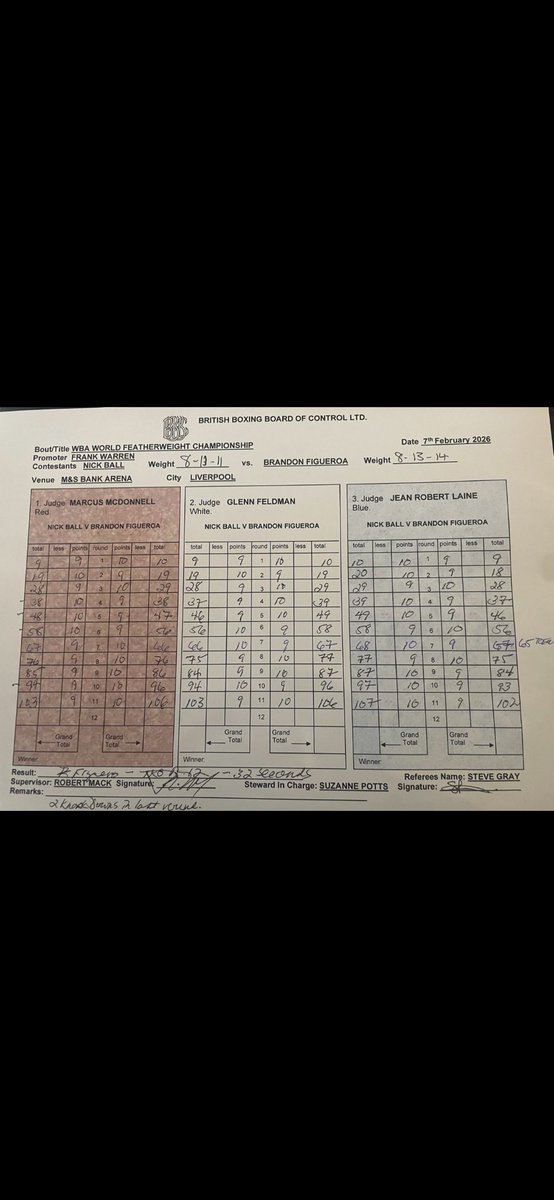 BRITISH BOXING BOARD OF CONTROL LTD.
Bout/Title WBA WORLD FEATHERWEIGHT CHAMPIONSHIP Date 7th February 2026
Promoter FRANK WARREN
Contestants NICK BALL Weight 8-13-11 vs. BRANDON FIGUEROA Weight 8-13-14
Venue M&S BANK ARENA City LIVERPOOL
1. Judge MARCUS MCDONNELL
Red.
NICK BALL V BRANDON FIGUEROA
total less points round points less total
9 9 1 10 10
19 10 2 9 19
28 9 3 10 29
38 10 4 9 38
48 10 5 9 47
58 10 6 9 56
67 9 7 10 66
76 9 8 10 76
85 9 9 10 86
94 9 10 10 96
103 9 11 10 106
12
Grand Total Grand Total
Winner:
2. Judge GLENN FELDMAN
White.
NICK BALL V BRANDON FIGUEROA
total less points round points less total
9 9 1 10 10
19 10 2 9 19
28 9 3 10 29
37 9 4 10 39
46 9 5 10 49
56 10 6 9 58
66 10 7 9 67
75 9 8 10 77
84 9 9 10 87
94 10 10 9 96
103 9 11 10 106
12
Grand Total Grand Total
Winner:
3. Judge JEAN ROBERT LAINE
Blue.
NICK BALL V BRANDON FIGUEROA
total less points round points less total
10 10 1 9 9
20 10 2 9 18
29 9 3 10 28
39 10 4 9 37
49 10 5 9 46
58 9 6 10 56
68 10 7 9 65
77 9 8 10 75
87 10 9 9 84
97 10 10 9 93
107 10 11 9 102
12
Grand Total Grand Total
Winner:
Result: B Figueroa - TKO 12 - 32 seconds Referees Name: STEVE GRAY
Supervisor: ROBERT MACK Signature: Steward In Charge: SUZANNE POTTS Signature:
Remarks: 2 knockdowns in last round.